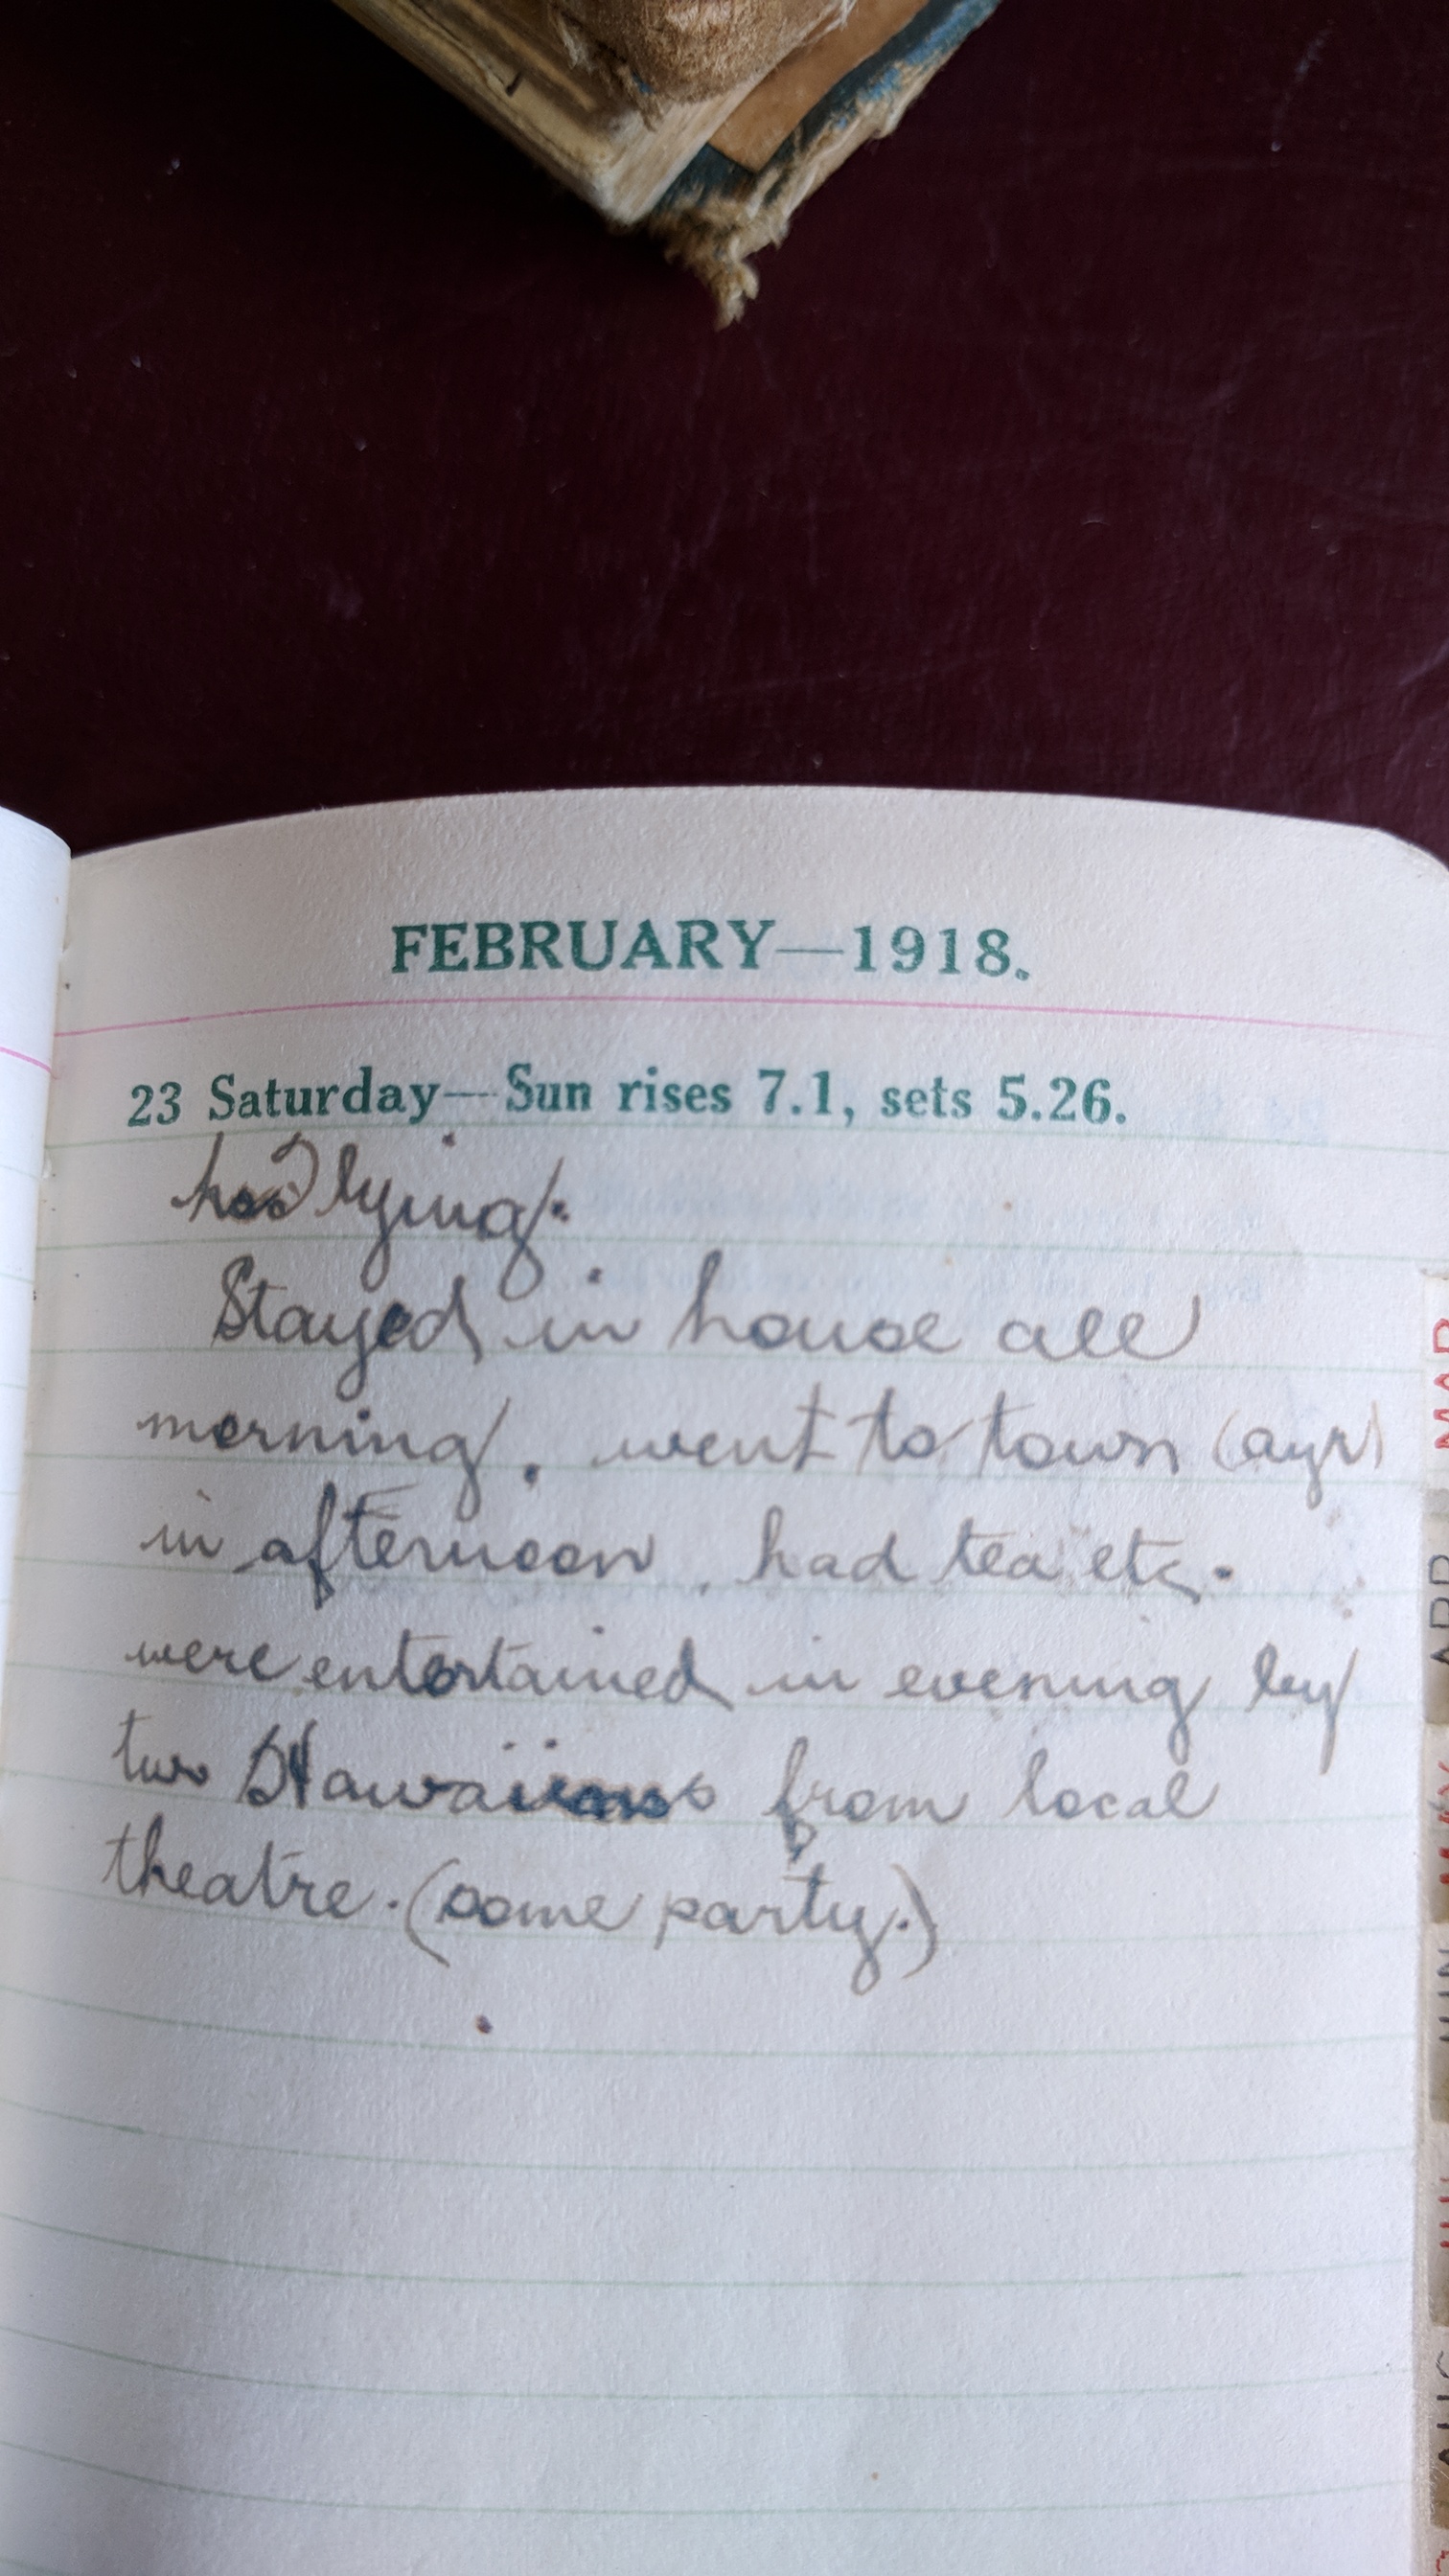 FEBRUARY—1918.
23 Saturday—Sun rises 7.1, sets 5.26.
lying.
Stayed in house all
morning, went to town (ayr)
in afternoon, had tea etc.
were entertained in evening by
two Hawaiians from local
theatre. (some party.)
MAR
APR
MAY
JUN
JUL
AUG